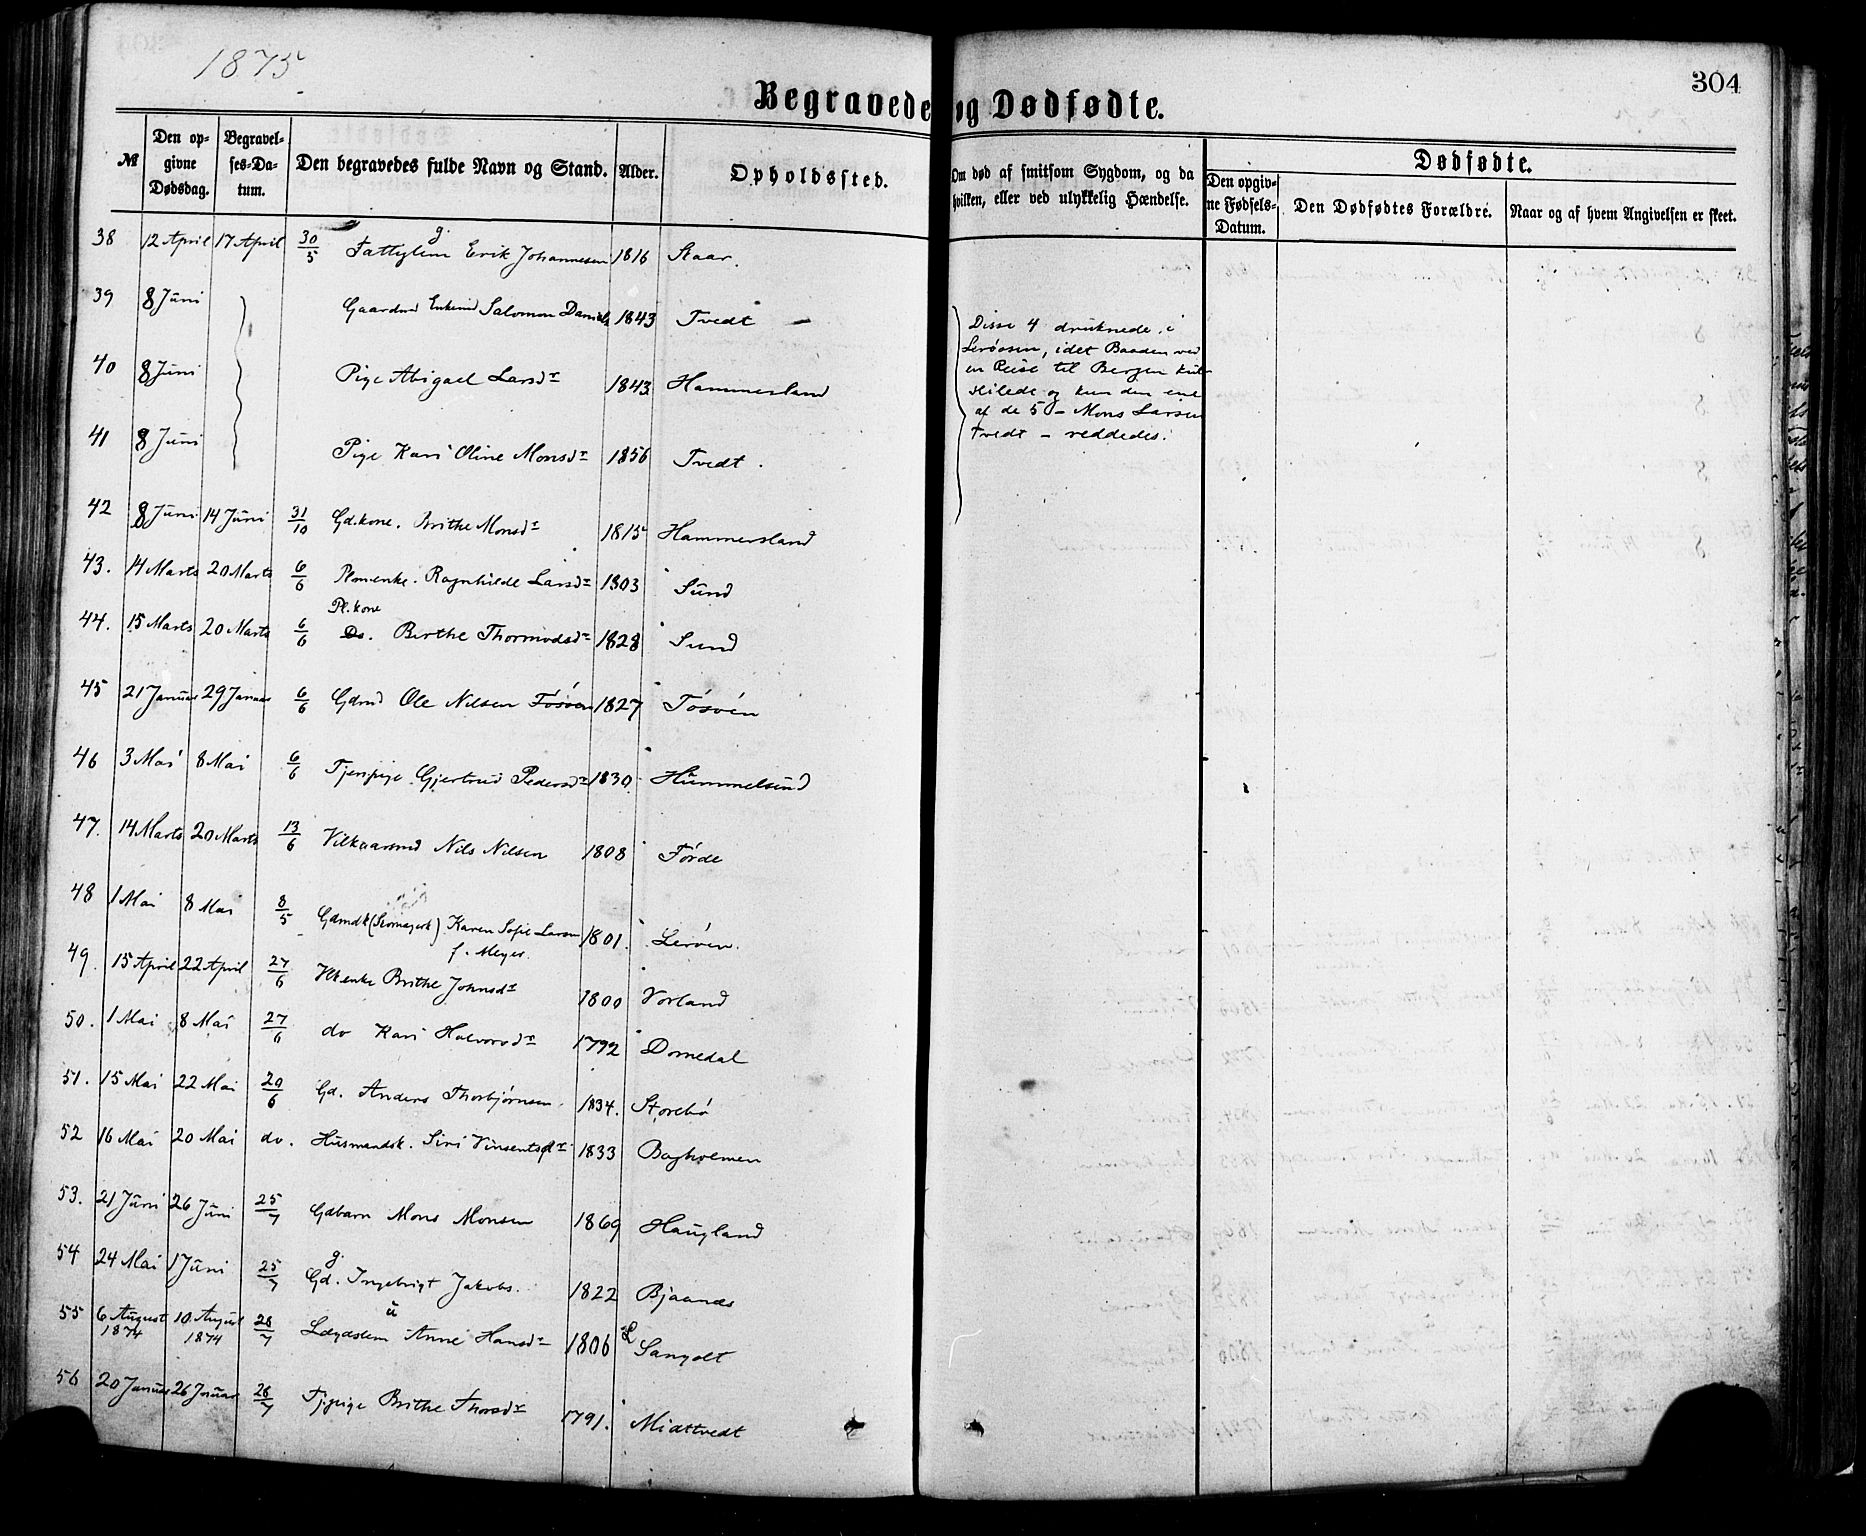 1875
304
Begravede og Dødfødte.
№
Den op-
givne
Dødsdag.
Begravel-
ses-Da-
tum.
Den begravedes fulde Navn og Stand.
Alder.
Opholdssted.
Om død af smitsom Sygdom, og da
hvilken, eller ved ulykkelig Hændelse.
Dødfødte.
Den opgiv-
ne Fødsels-
Datum.
Den Dødfødtes Forældre.
Naar og af hvem Angivelsen er skeet.
38 12 April 17 April 30/5 Fattiglem Erik Johannesen 1816 Skaar.
39 8 Juni Gaardmd Enkemd Salomon Daniels 1843 Tvedt
40 8 Juni Pige Abigael Larsdr 1843 Hammersland
41 8 Juni Pige Kari Oline Monsdr 1856 Tvedt.
Disse 4 druknede i
Lerøosen, idet Baaden ved
en Reise til Bergen kul-
seilede og kun den ene
af de 5 – Mons Larsen
Tvedt – reddedes.
42 8 Juni 14 Juni 31/10 Gd.kone. Brithe Monsdr 1815 Hammersland
43. 14 Marts 20 Marts 6/6 Plmenke. Ragnhilde Larsdr 1803 Sund
Pl. kone
44. 15 Marts 20 Marts 6/6 Ds. Birthe Thormodsdr 1828 Sund
45 21 Januar 29 Januar 6/6 Gdmd Ole Nilsen Tøsøen 1827 Tøsøen
46 3 Mai 8 Mai 6/6 Tjenpige Gjertrud Pedersdr 1830 Hummelsund
47. 14 Marts 20 Marts 13/6 Vilkaarsmd Nils Nilsen 1808 Førde
48 1 Mai 8 Mai 8/5 Gdmdk Karen Sofie Larsen 1801. Lerøen.
f. Meyer.
49. 15 April 22 April 27/6 Vlkenke Brithe Johnsdr 1800 Vorland
50. 1 Mai 8 Mai 27/6 do Kari Halvorsdr 1792 Dommedal
51. 15 Mai 22 Mai 29/6 Gd. Anders Thorbjørnsen. 1834. Storebø
52 16 Mai 20 Mai do. Husmandsk. Siri Vinsentsdr 1833 Bagholmen
53. 21 Juni 26 Juni 25/7 Gdbarn Mons Monsen 1869 Haugland
54 24 Mai 1 Juni 25/7 Gd. Ingebrigt Jakobs. 1822 Bjaanæs
55 6 August 1874 10 August 1874 28/7 Lægdslem Anne Hansdr 1806 Sangolt
56 20 Januar 26 Januar 28/7 Tjpige Brithe Thorsdr 1791. Midttvedt